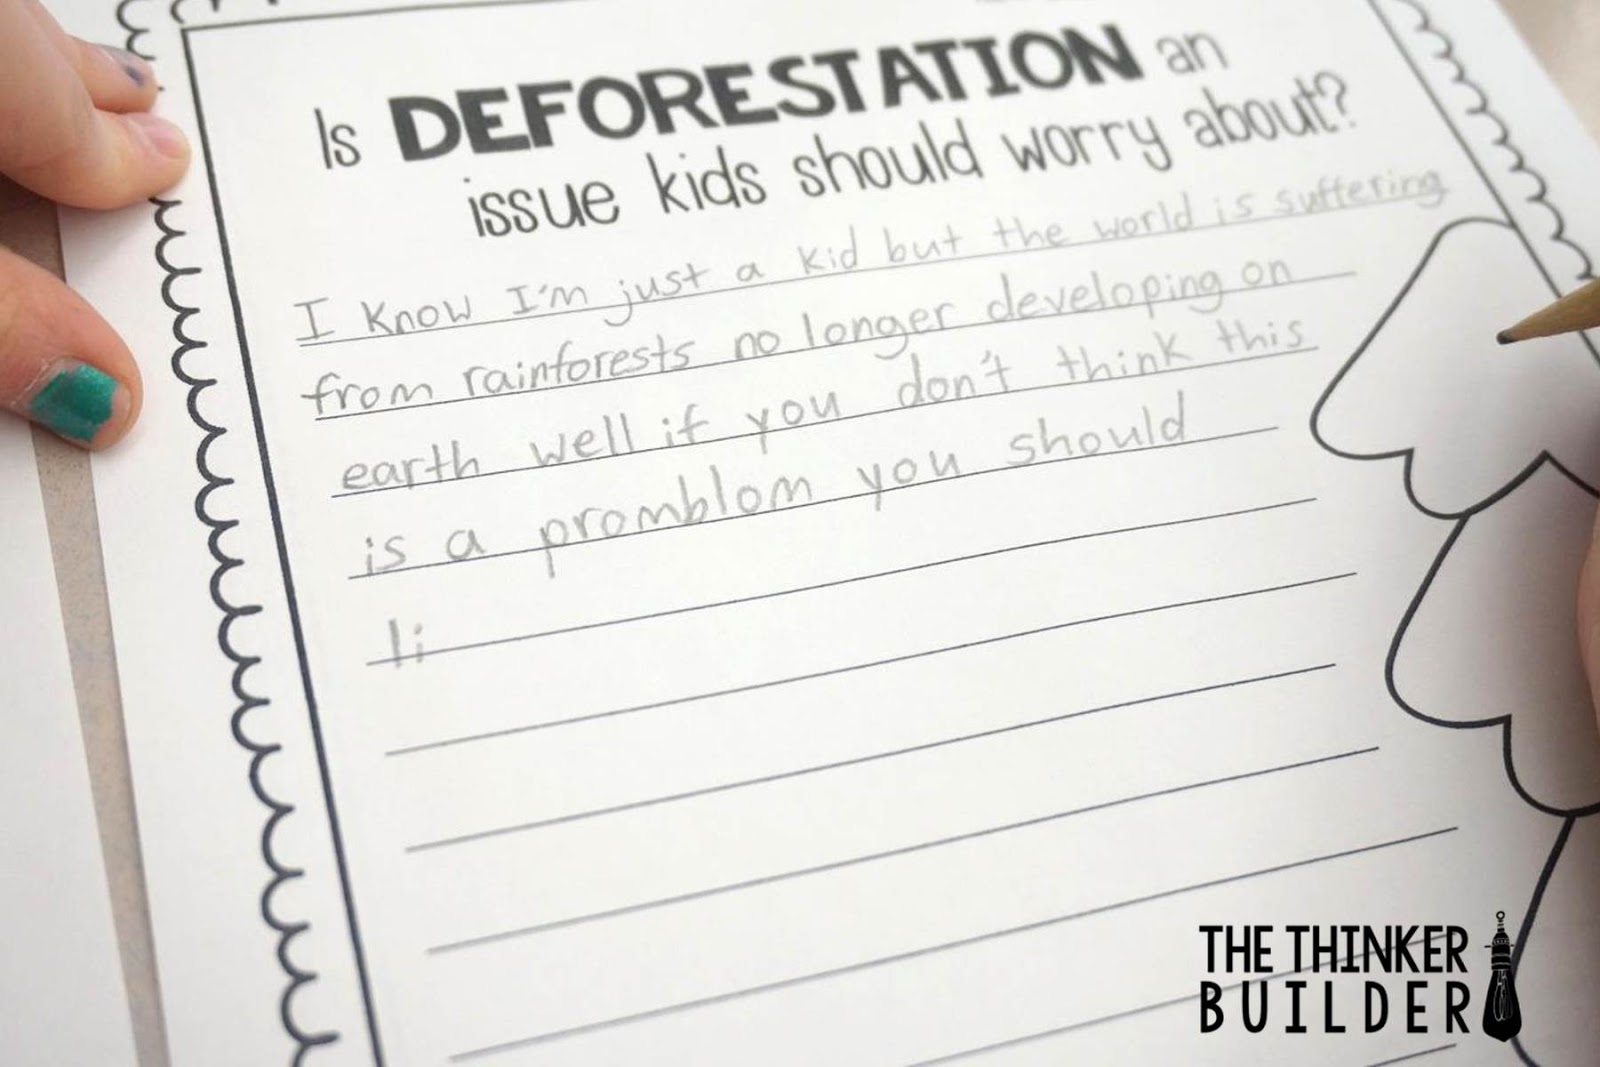 Is DEFORESTATION an
issue kids should worry about?
I know I'm just a kid but the world is suffering
from rainforests no longer developing on
earth well if you don't think this
is a promblom you should
li
THE THINKER
BUILDER